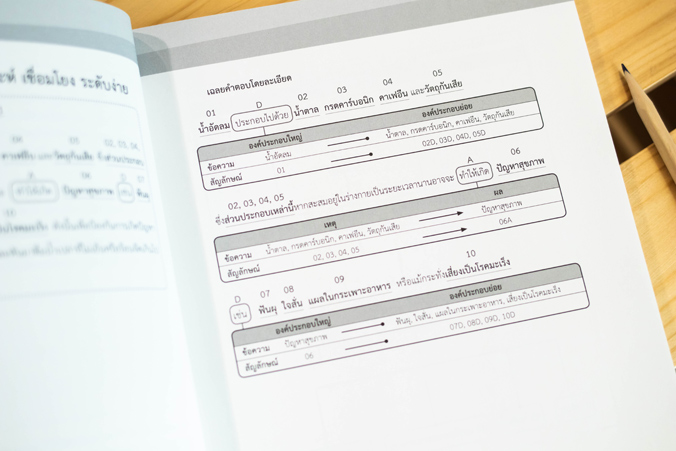 เฉลยคำตอบโดยละเอียด
01 D 02 03 04 05
น้ำอัดลม ประกอบไปด้วย น้ำตาล กรดคาร์บอนิก คาเฟอีน และวัตถุกันเสีย
องค์ประกอบใหญ่ องค์ประกอบย่อย
ข้อความ น้ำอัดลม น้ำตาล, กรดคาร์บอนิก, คาเฟอีน, วัตถุกันเสีย
สัญลักษณ์ 01 02D, 03D, 04D, 05D
02, 03, 04, 05 A 06
ซึ่งส่วนประกอบเหล่านี้หากสะสมอยู่ในร่างกายเป็นระยะเวลานานอาจจะ ทำให้เกิด ปัญหาสุขภาพ
เหตุ ผล
ข้อความ น้ำตาล, กรดคาร์บอนิก, คาเฟอีน, วัตถุกันเสีย ปัญหาสุขภาพ
สัญลักษณ์ 02, 03, 04, 05 06A
D 07 08 09 10
เช่น ฟันผุ ใจสั่น แผลในกระเพาะอาหาร หรือแม้กระทั่งเสี่ยงเป็นโรคมะเร็ง
องค์ประกอบใหญ่ องค์ประกอบย่อย
ข้อความ ปัญหาสุขภาพ ฟันผุ, ใจสั่น, แผลในกระเพาะอาหาร, เสี่ยงเป็นโรคมะเร็ง
สัญลักษณ์ 06 07D, 08D, 09D, 10D
เชื่อมโยง ระดับง่าย
ปัญหาสุขภาพ เช่น ฟันผุ